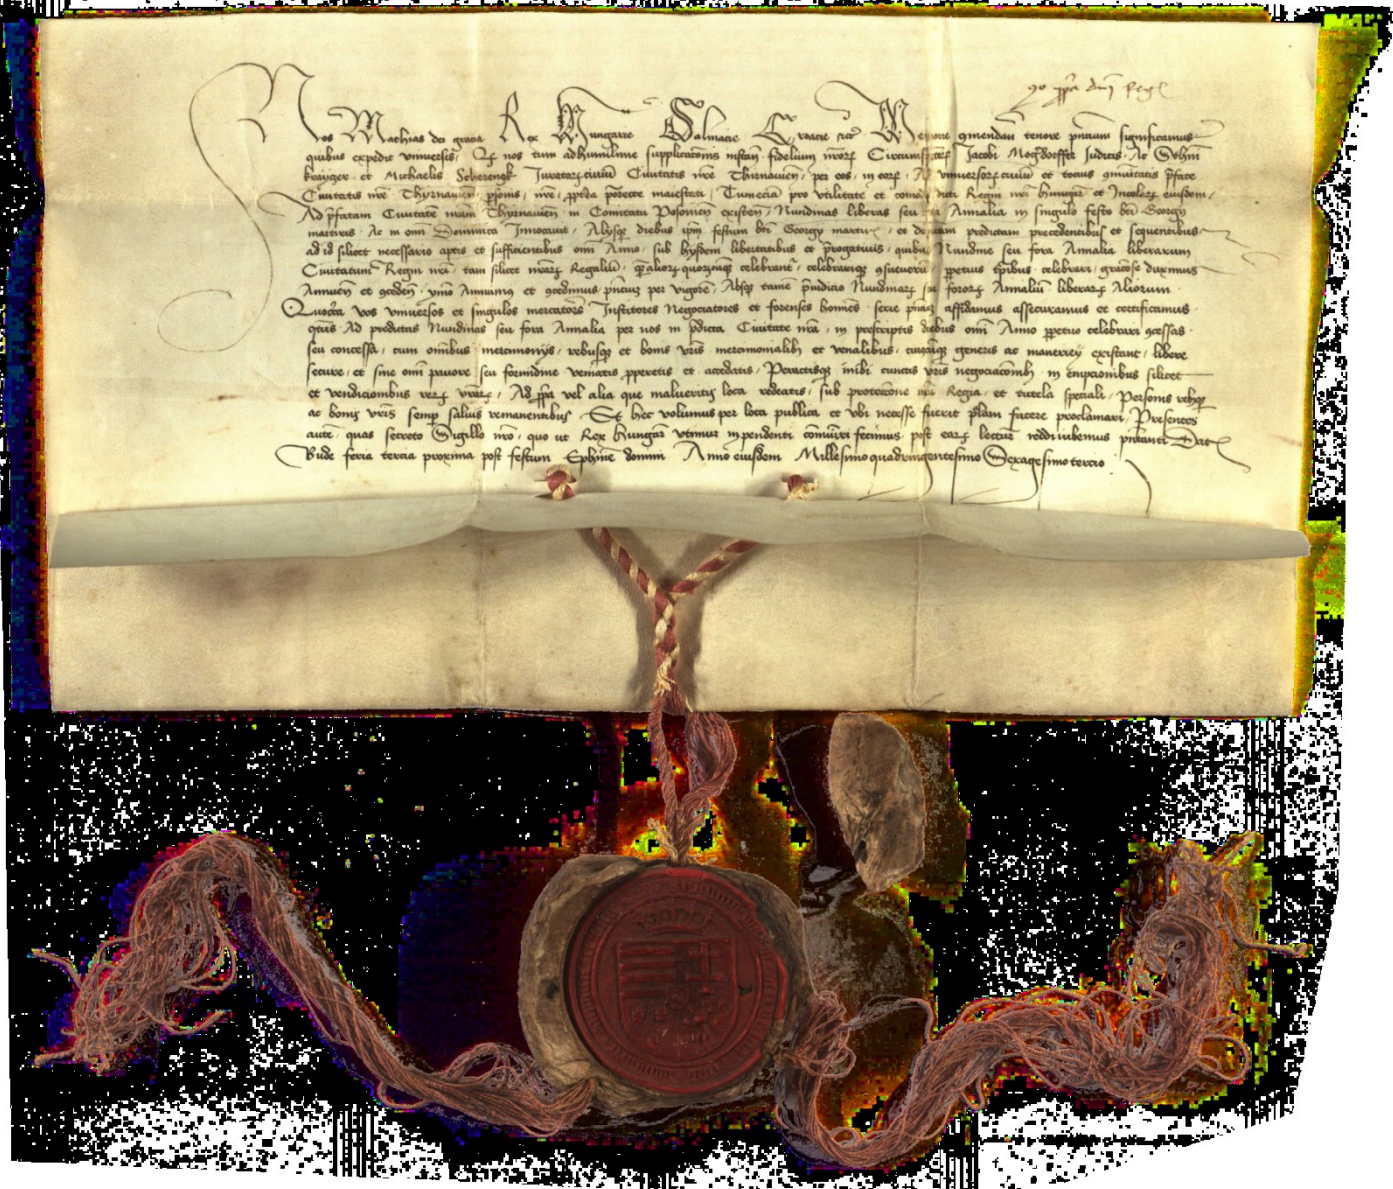 ppria dni Regis
Nos Mathias dei gracia Rex Hungarie Dalmacie Croacie etc Memorie comendam tenore pntium significamus
quibus expedit vniuersis Qz nos tum ad humilime supplicacionis instan fidelium nrorz Circumspctorz Jacobi Mogsdorffer Judicis Ac
et Michaelis Juratorz ciuiu Ciuitatis nre Thirnauien per eos in eorz Ac vniuersorz ciuiu et tocius cmunitatis pfate
Ciuitatis nre Thyrnauien psonis nre ppterea porrecte maiestati Tumeciam pro vtilitate et comoditate Regni nri hungar et Incolarz eiusdem
Ad pfatam Ciuitate nram Thyrnauien in Comitatu Posonien existen Nundinas liberas seu fora Annalia in singulo festo bti Georgy
martiris Ac in omni Dominica Inuocauit Alysqz diebus ipm festum bti Georgy martiris et dominicam predictam precedentibus et sequentibus
ad id silicet necessario aptis et sufficientibus omi Anno sub hysdem libertatibus et prerogatiuis quibus Nundine seu fora Annalia liberarum
Ciuitatum Regni nri tam silicet nrarz Regaliu qz aliorz quorzcumqz celebrant celebrariqz csueuerut ppetuis tpribus celebrari graciose duximus
Annuen et cceden ymo Annuimus et ccedimus pntium per vigore Absqz tame preiudicio Nundinarz seu fororz Annaliu liberarz Aliorum
Quocirca vos vniuersos et singulos mercatores Institores Negociatores et forenses homines serie pntium affidamus assecuramus et certificamus
qtus Ad predictas Nundinas seu fora Annalia per nos in pdicta Ciuitate nra in prescriptis diebus omi Anno ppetuo celebrari ccessas
seu concessa cum omibus mercimonys rebusqz et bonis vris mercimonialibz et venalibus cuiuscumqz generis ac maneriei existant libere
secure et sine omi pauore seu formidine veniatis pperetis et accedatis Peractisqz inibi cunctis vris negociacionibz in empcionibus silicet
et vendicionibus rerz vrarz Ad ppria vel alia que malueritis loca redeatis sub protectione nra Regia et tutela speciali Personis rebusqz
ac bonis vris semp saluis remanentibus Et hec volumus per loca publica et vbi necesse fuerit palam facere proclamari Presentes
aute quas secreto Sigillo nro quo ut Rex hungar vtimur inpendenti comuniri fecimus post earz lecturam reddi iubemus pntanti Dat
Bude feria tercia proxima post festum Ephinie domini Anno eiusdem Millesimo quadringentesimo Sexagesimo tercio